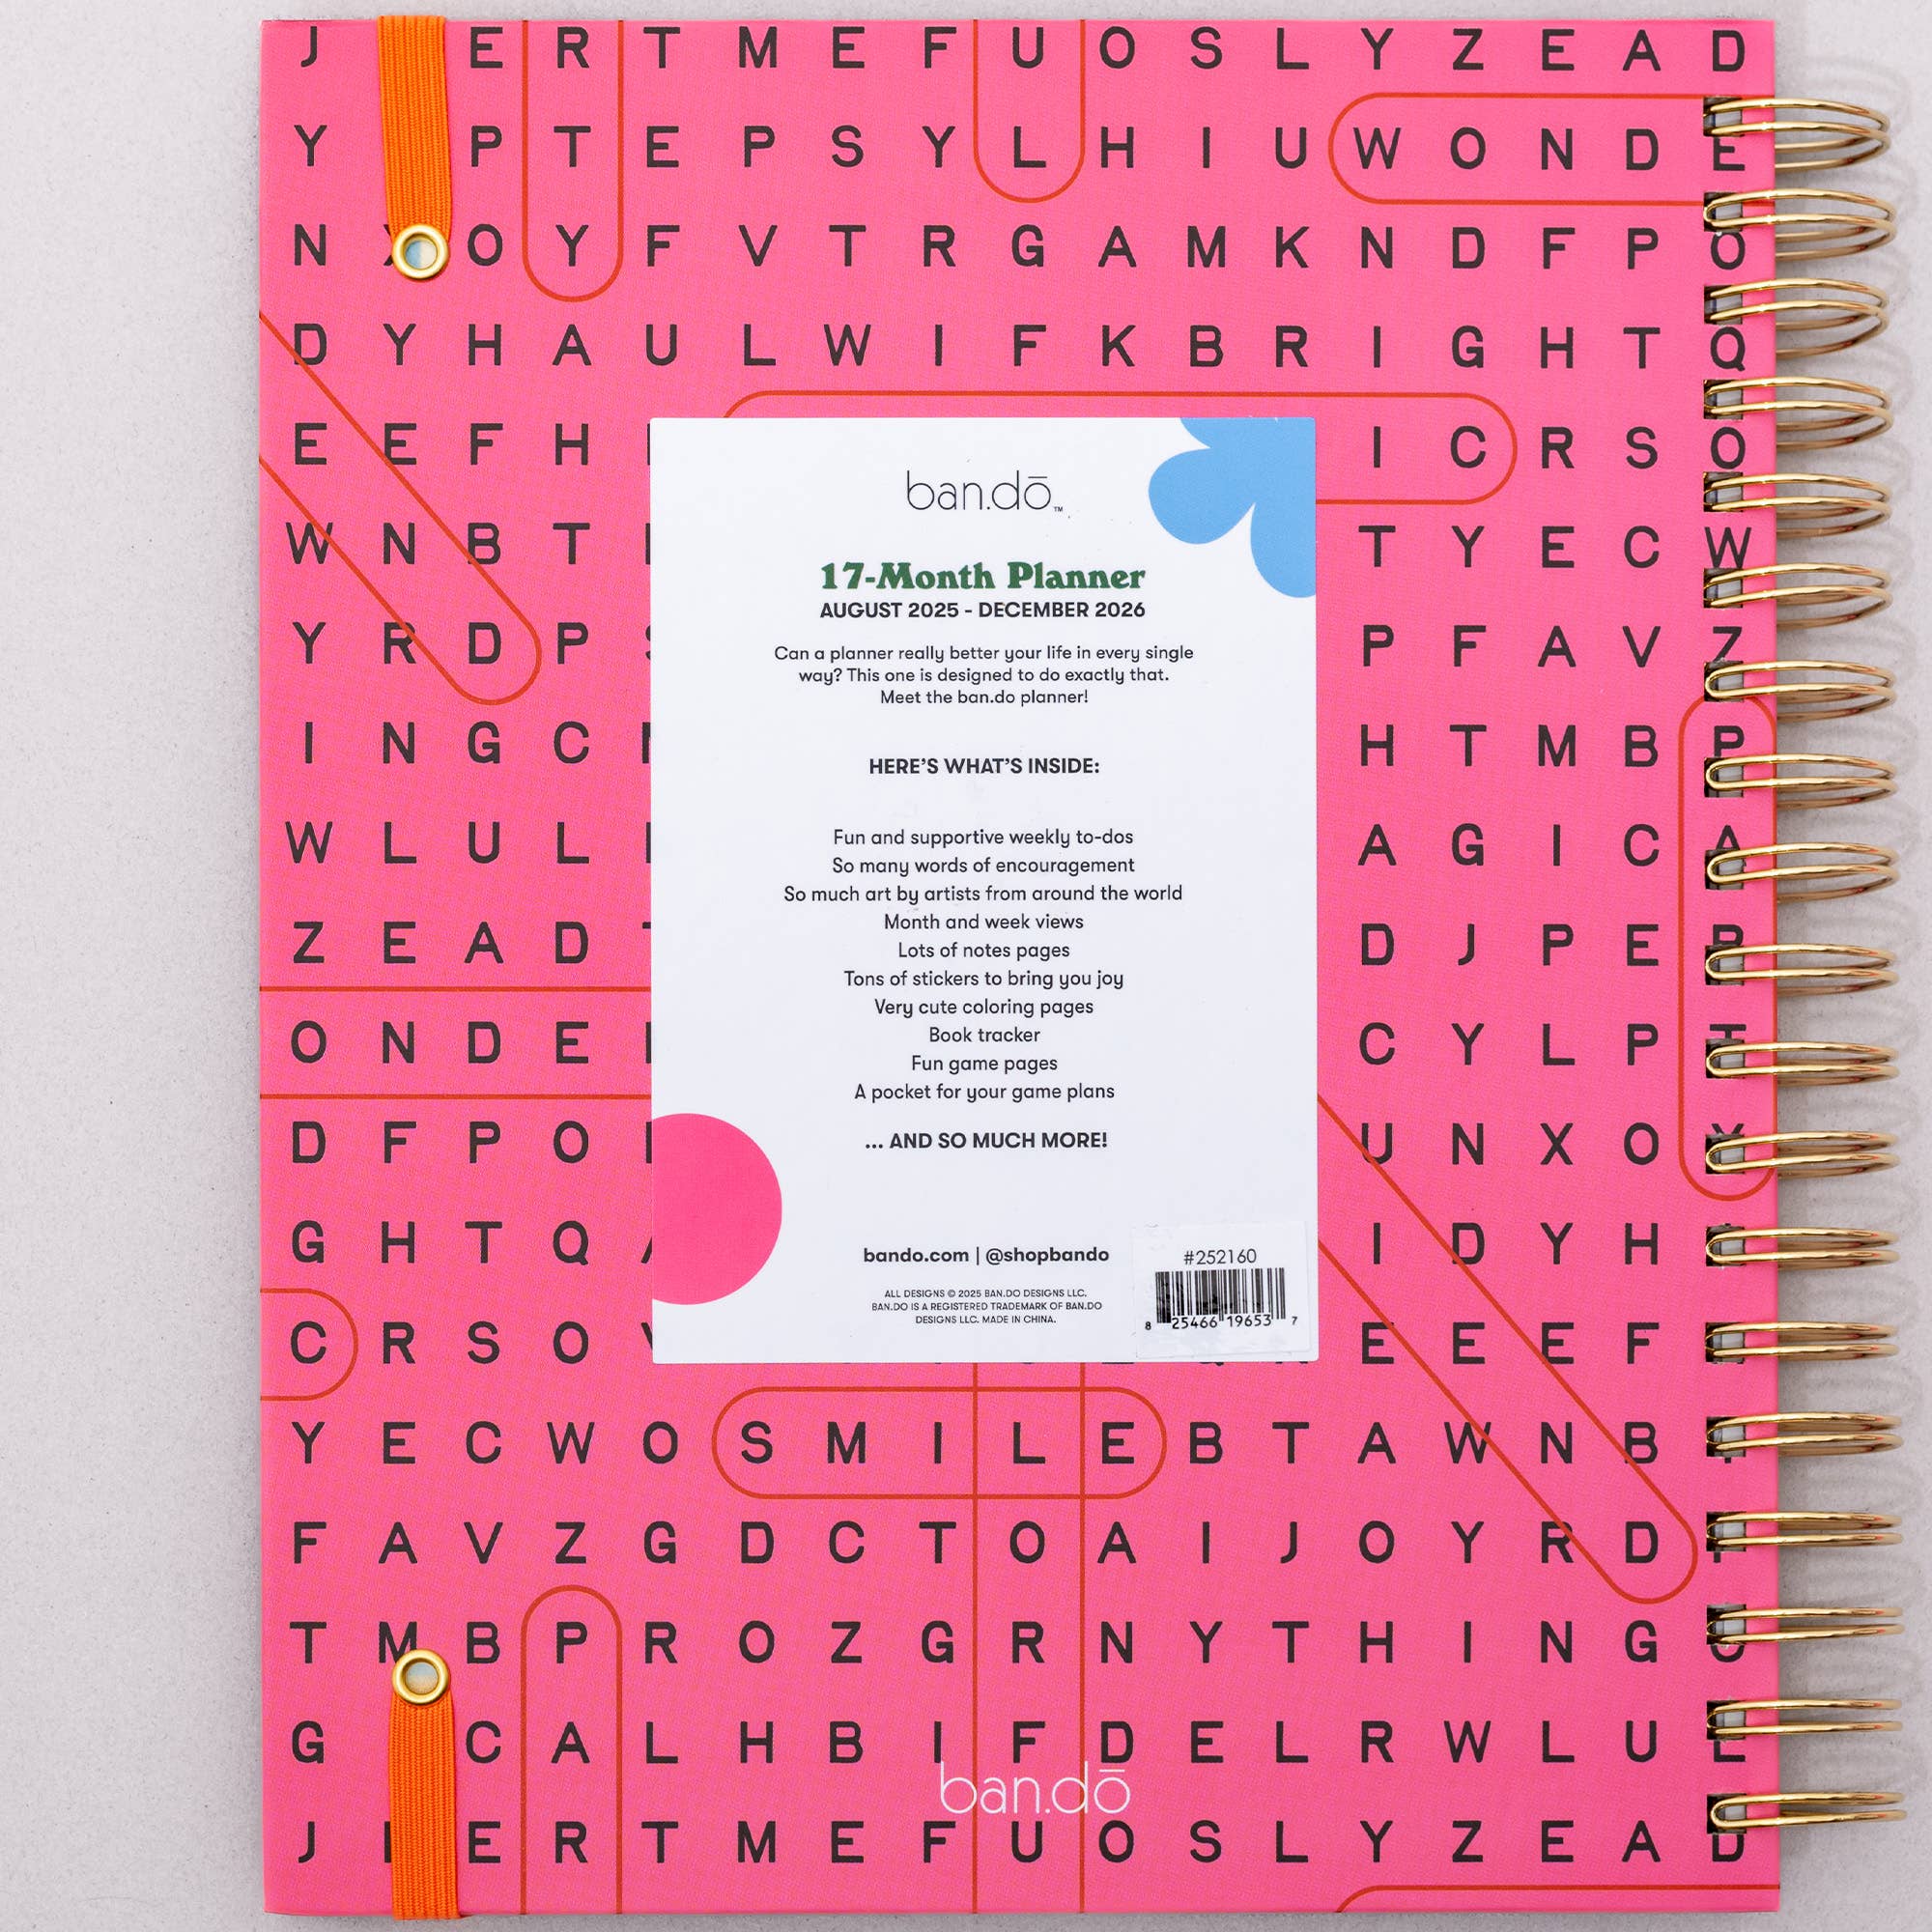 J E R T M E F U O S L Y Z E A D
Y P T E P S Y L H I U W O N D E
N O Y F V T R G A M K N D F P O
D Y H A U L W I F K B R I G H T Q
E E F H I C R S O
W N B T T Y E C W
Y R D P P F A V Z
I N G C H T M B P
W L U L A G I C A
Z E A D D J P E R
O N D E C Y L P T
D F P O U N X O Y
G H T Q I D Y H
C R S O E E E F
Y E C W O S M I L E B T A W N B
F A V Z G D C T O A I J O Y R D
T M B P R O Z G R N Y T H I N G
G C A L H B I F D E L R W L U E
J E R T M E F U O S L Y Z E A D
ban.dō™
17-Month Planner
AUGUST 2025 - DECEMBER 2026
Can a planner really better your life in every single
way? This one is designed to do exactly that.
Meet the ban.do planner!
HERE'S WHAT'S INSIDE:
Fun and supportive weekly to-dos
So many words of encouragement
So much art by artists from around the world
Month and week views
Lots of notes pages
Tons of stickers to bring you joy
Very cute coloring pages
Book tracker
Fun game pages
A pocket for your game plans
... AND SO MUCH MORE!
bando.com | @shopbando
ALL DESIGNS © 2025 BAN.DO DESIGNS LLC.
BAN.DO IS A REGISTERED TRADEMARK OF BAN.DO
DESIGNS LLC. MADE IN CHINA.
#252160
8 25466 19653 7
ban.dō